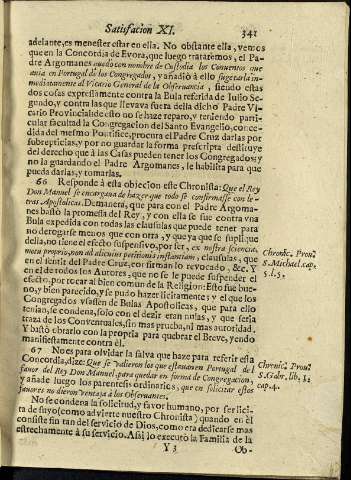 Satisfacion XI. 341
adelante, es menester estar en ella. No obstante ella, vemos
que en la Concordia de Evora, que luego trataremos, el Pa-
dre Argomanes quedò con nombre de Custodia los Conventos que
auia en Portugal de los Congregados, y añadiò a ello sugetarla in-
mediatamente al Vicario General de la Observancia, siendo estas
dos cosas expressamente contra la Bula referida de Iulio Se-
gundo, y contra las que llevava fuera della dicho Padre Vi-
cario Provincial: de esto no se haze reparo, y teniendo parti-
cular facultad la Congregacion del Santo Evangelio, conce-
dida del mesmo Pontifice, procura el Padre Cruz darlas por
subrepticias, y por no guardar la forma prescripta destituye
del derecho que à las Casas pueden tener los Congregados; y
no la guardando el Padre Argomanes, le habilita para que
pueda darlas, y tomarlas.
66 Responde à esta objecion este Chronista: Que el Rey
Don Manuel se encargana de hazer que todo se confirmasse con le-
tras Apostolicas. Demanera, que para con el Padre Argoma-
nes bastò la promessa del Rey, y con ella se fue contra vna
Bula expedida con todas las clausulas que puede tener para
no derogarse menos que con otra, y que ya que se suplique
della, no tiene el efecto suspensivo, por ser, ex nostra scientia,
motu proprio, non ad alicuius petitionis instantiam, clausulas, que
en el sentir del Padre Cruz, confirman lo revocado, &c. Y
en el de todos los Autores, que no se le puede suspender el
efecto, por tocar al bien comun de la Religion: Esto fue bue-
no, y bien parecido, y se pudo hazer licitamente; y el que los
Congregados vsassen de Bulas Apostolicas, que para ello
tenian, se condena, solo con el dezir eran nulas, y que seria
traza de los Conventuales, sin mas prueba, ni mas autoridad.
Y bastò ebrarlo con la propria para quebrar el Breve, yendo
manifiestamente contra èl.
Chronic. Prou.
S. Michael. cap.
5. l. 5.
67 No es para olvidar la salva que haze para referir esta
Concordia, dize: Que se valieron los que estauan en Portugal de l
fauor del Rey Don Manuel, para quedar en forma de Congregacion;
y añade luego los parentesis ordinarios, que en solicitar estos
fauores no dieron ventaja à los Observantes.
Chronic. Prou.
S. Gabr. lib. 1.
cap. 4.
No se condena la solicitud, y favor humano, por ser lici-
ta de suyo (como advierte nuestro Chronista) quando en èl
consiste fin tan del servicio de Dios, como era dedicarse mas
estrechamente à su servicio. Assi lo executò la Familia de la
Y 3 Ob-